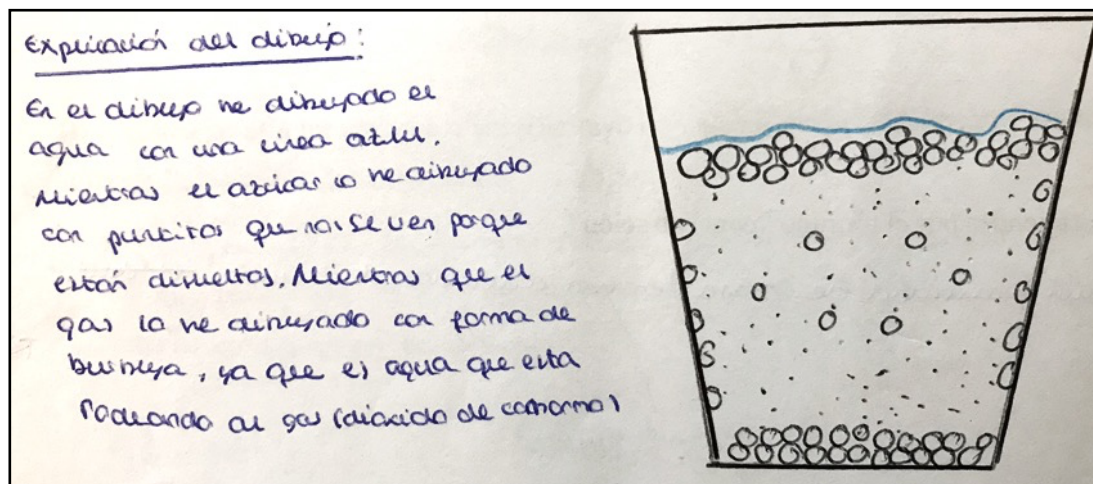 Explicación del dibujo:
En el dibujo he dibujado el
agua con una línea azul.
Mientras el azúcar lo he dibujado
con puntitos que no se ven porque
están disueltos. Mientras que el
gas lo he dibujado con forma de
burbuja, ya que es agua que esta
rodeando al gas (dióxido de carbono)